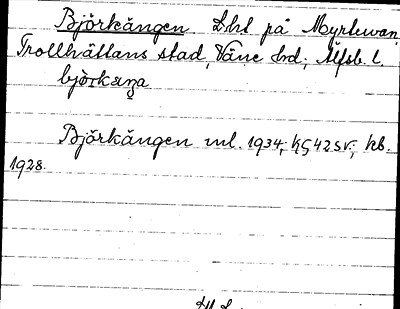 Björkängen. Lht på Myrtuvan,
Trollhättans stad, Väne hd, Älfsb. l.
björkäŋa
Björkängen ml. 1934, KG 42 SV; kb.
1928.